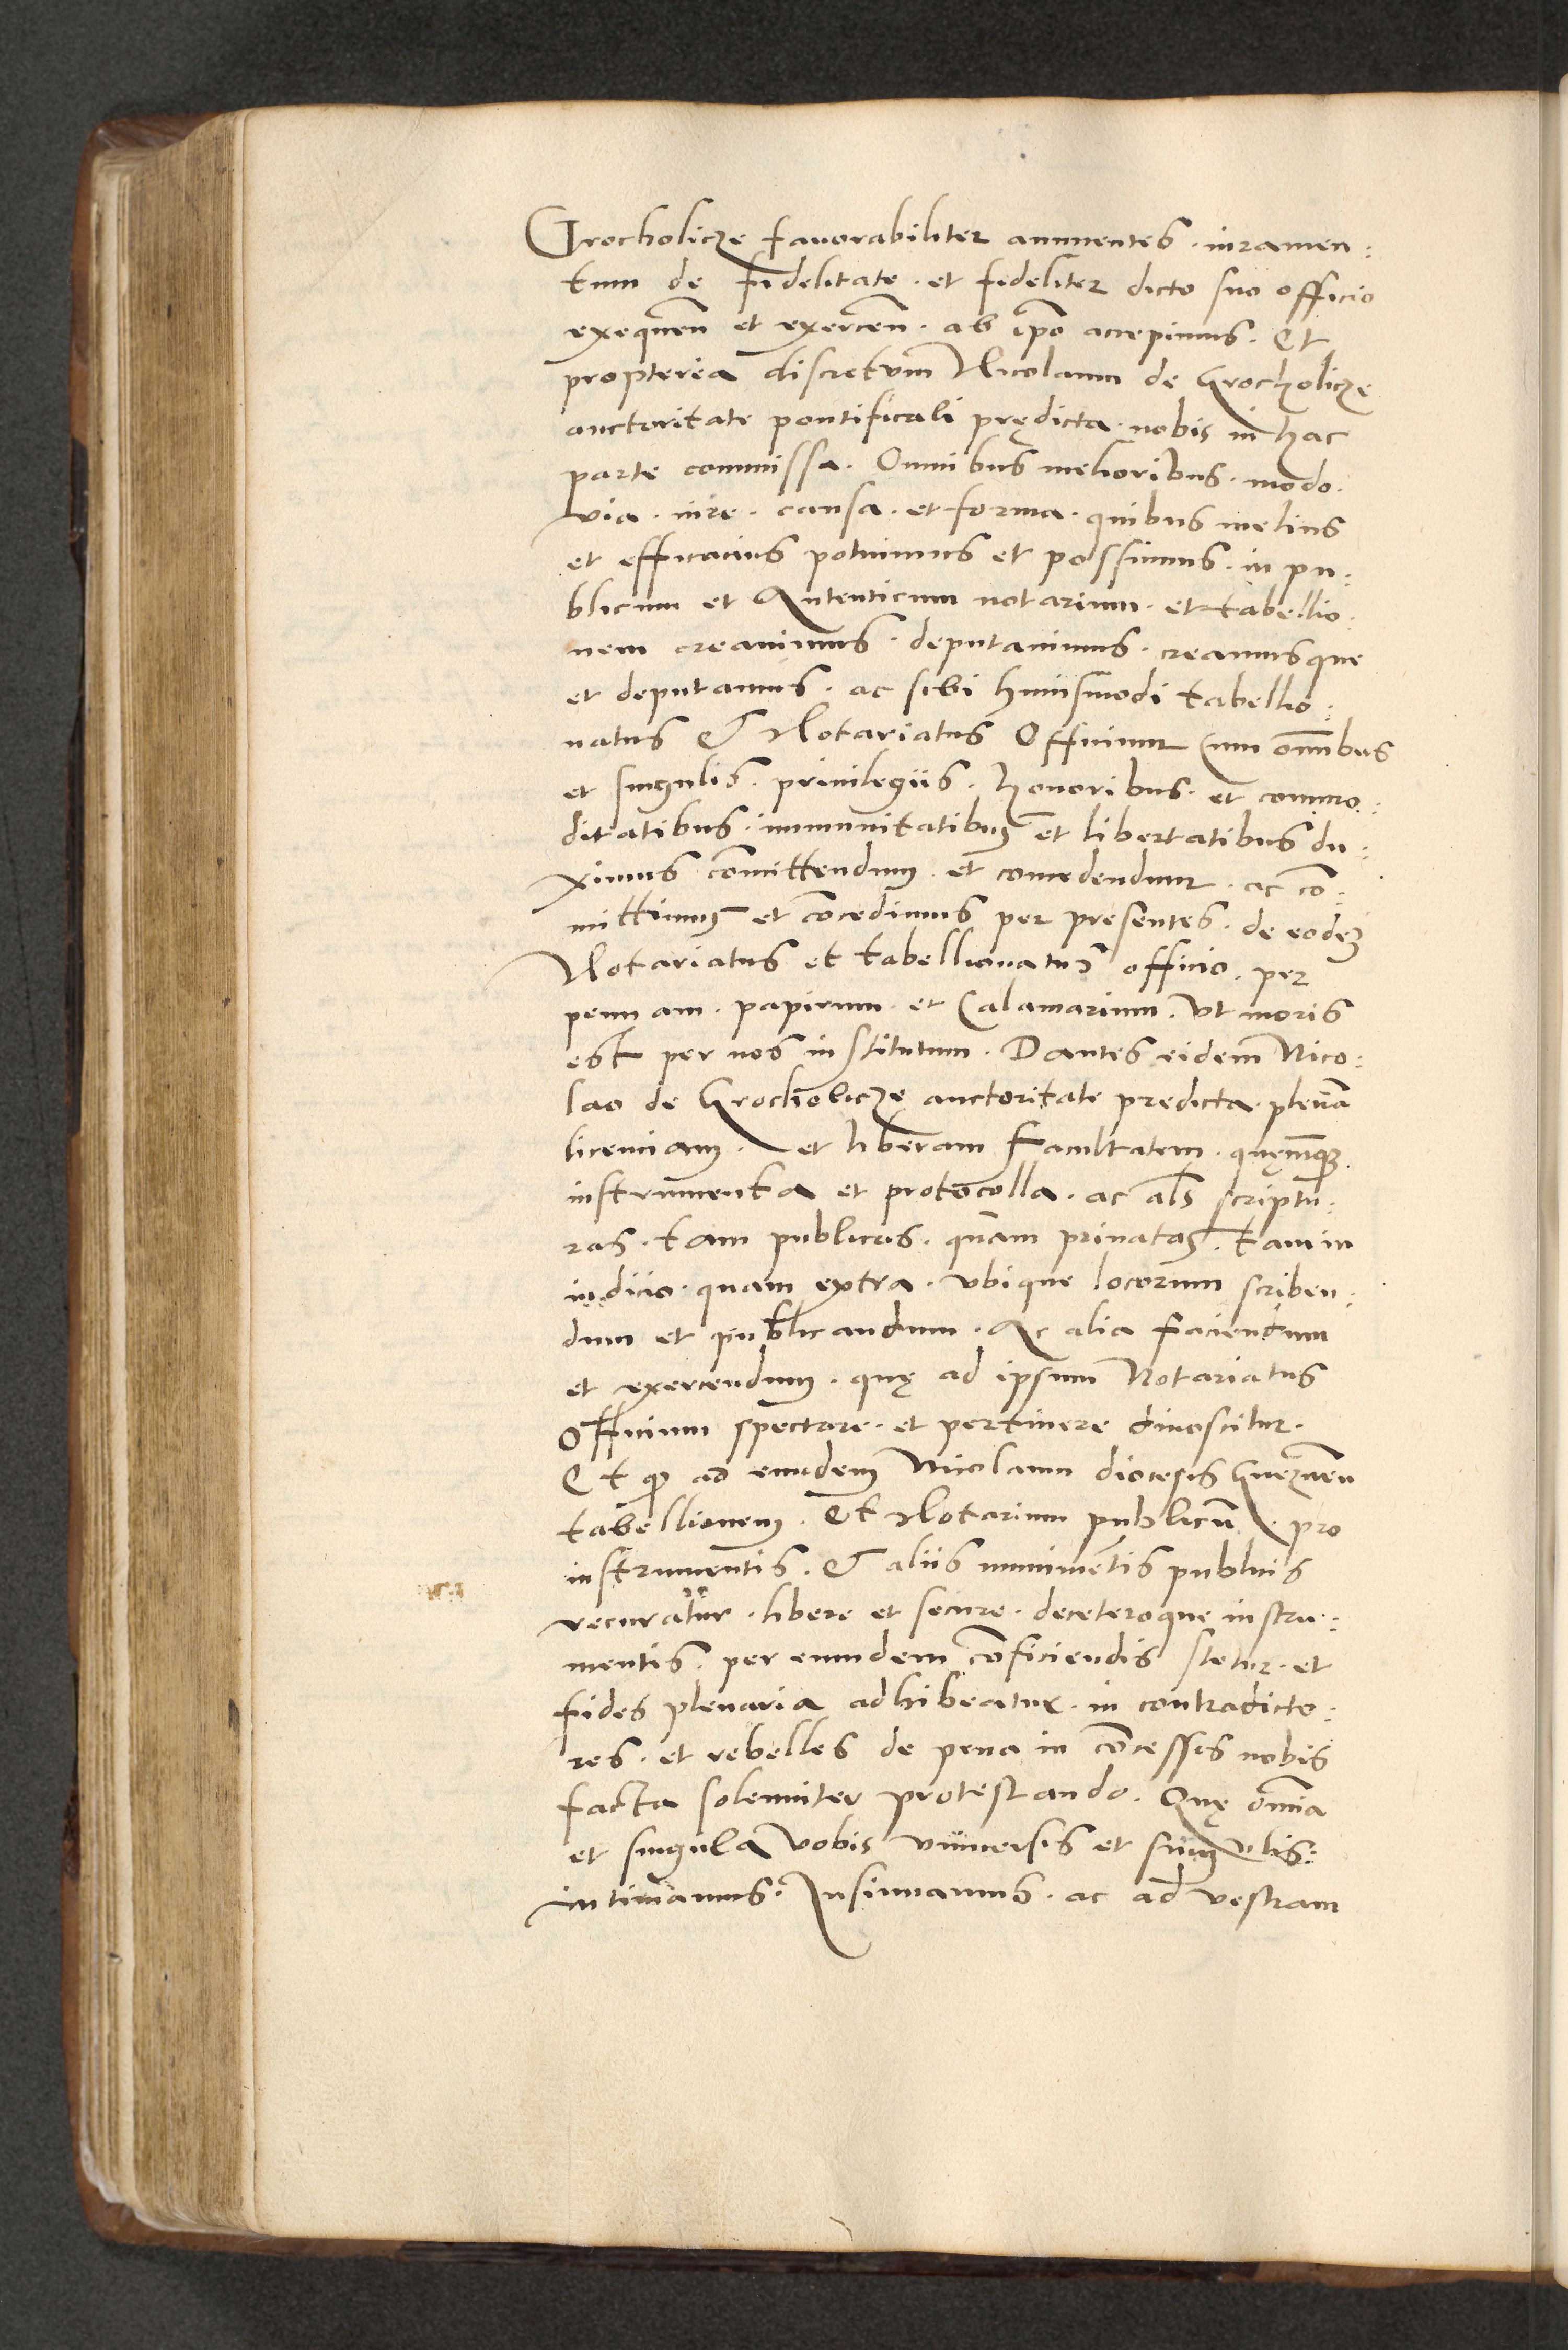 Grocholicze fauorabiliter annuentes · iuramen:
tum de fidelitate · et fideliter dicto suo officio
exequen̄ et exercen̄ · ab ip̄o accepimus · Et
propterea discretum̄ Nicolaum de Grocholicze
auctoritate pontificali prędicta · nobis in hac
parte commissa · Omnibus melioribus · modo ·
via · iure · causa · et forma · quibus melius
et efficacius potuimus et possimus · in pu:
blicum et Autenticum notarium · et tabellio:
nem creauimus · deputauimus · creamusque
et deputamus · ac sibi huiusmodi tabellio:
natus & Notariatus Officium Cum om̄ibus
et singulis · priuilegiis · honoribus · et commo:
ditatibus · immunitatibus et libertatibus du:
ximus com̄ittendum · et concedendum · ac co̅:
mittimus et co̅cedimus per presentes · de eodeȝ
Notariatus et tabellionatus officio · per
pennam · papirum · et Calamarium · Vt moris
est per nos institutum · Dantes eidem Nico:
lao de Grocholiczę auctoritate predicta · plena̅
licenciam · et liberam facultatem · quęmqȝ
instrumenta et protocolla · ac al̄s scriptu:
ras · tam publicas · quam priuatas · tam in
iudicio · quam extra · vbique locorum scriben:
dum et publicandum · Ac alia faciendum
et exercendum · quę ad ipsum Notariatus
Officium spectare · et pertinere dinoscitur ·
Et qȝ ad eundem Nicolaum diocesis Gneznen̄
tabellionem · Et Notarium publicu̅ · pro
instrumentis · & aliis munime̅tis publicis
recuratur · libere et secure · deceteroque instru:
mentis · per eundem co̅ficiendis stetur · et
fides plenaria adhibeatur · in contradicto:
res · et rebelles de pena in co̅cessis nobis
facta solenniter protestando · Quę om̄ia
et singula vobis vniuersis et singulis:
intimamus: Insinuamus · ac ad vestram